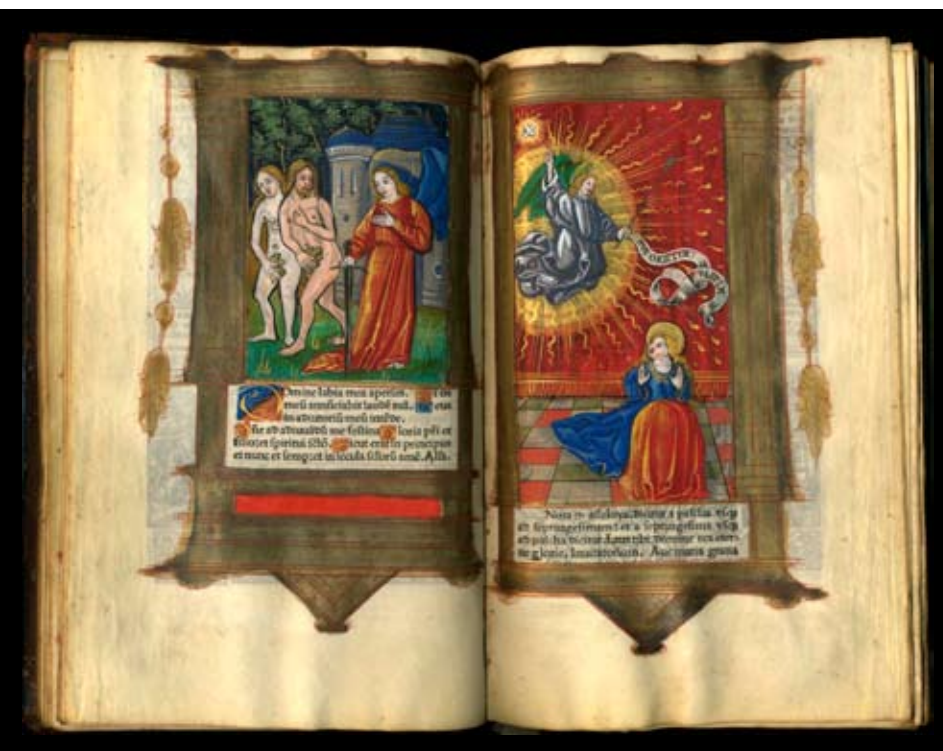 Domine labia mea aperies. Et os
meū annūciabit laudē tuā. Deus
in adiutoriū meū intēde.
Dñe ad adiuuādū me festina Gloria pr̄i et
filio: et spiritui sctō. Sicut erat in principio
et nunc et semp: et in secula sclorū amē. Alla.
Nota q alleluya. dicitur a pascha vsq
ad septuagesimam: et a septuagesima vsq
ad pascha dicitur Laus tibi domine rex eter-
ne glorie. Inuitatorium. Aue maria gratia